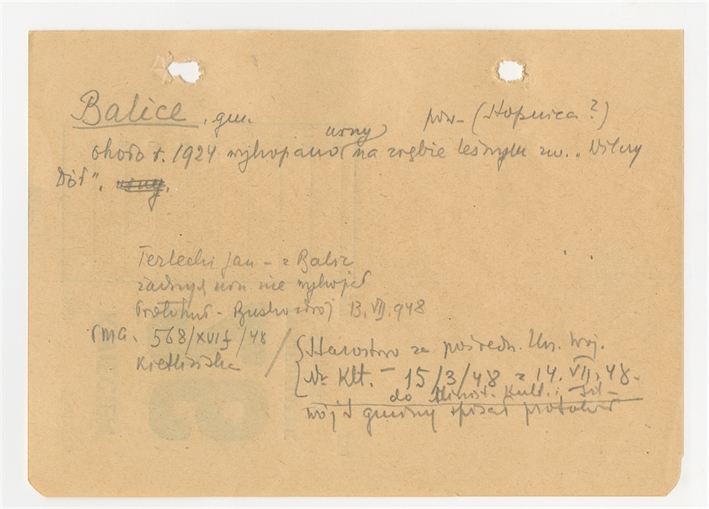 Balice, gm. pow. (Stopnica?)
około r. 1924 wykopano urny na zrębie leśnym zw. "Wilczy
Dół".
Terlecki Jan - z Balic
żadnych urn nie wykopał
Protokół - Busko Zdrój 13.VII.948
PMA. 568/XVIII/48
Kietlińska
Starostwo za pośredn. Urz. Woj.
Nr Klt. - 15/3/48 z 14.VII.48.
do Minist. Kult. i Szt. -
wójt gminy spisał protokół